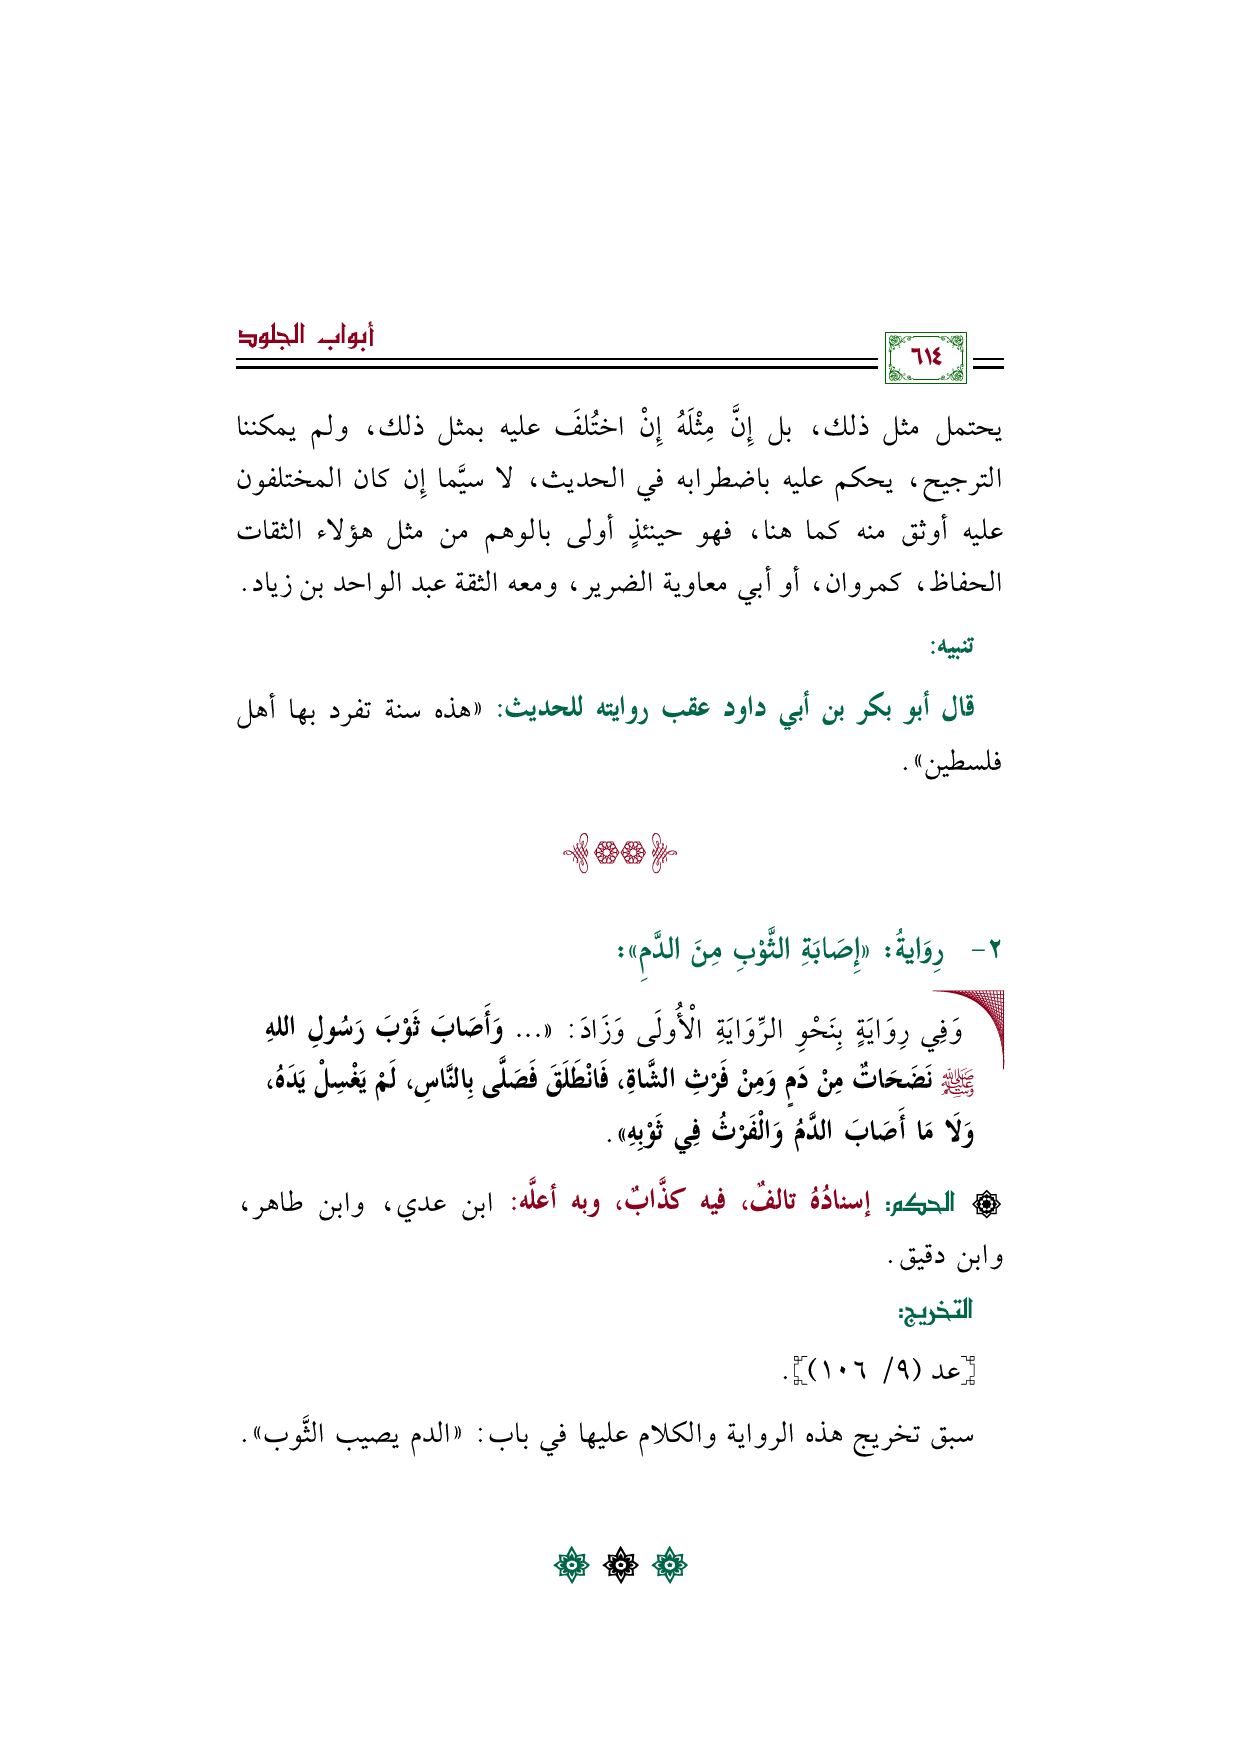 أبواب الجلود
٦١٤
يحتمل مثل ذلك، بل إِنَّ مِثْلَهُ إِنْ اختُلفَ عليه بمثل ذلك، ولم يمكننا
الترجيح، يحكم عليه باضطرابه في الحديث، لا سيَّما إِن كان المختلفون
عليه أوثق منه كما هنا، فهو حينئذٍ أولى بالوهم من مثل هؤلاء الثقات
الحفاظ، كمروان، أو أبي معاوية الضرير، ومعه الثقة عبد الواحد بن زياد.
تنبيه:
قال أبو بكر بن أبي داود عقب روايته للحديث: «هذه سنة تفرد بها أهل
فلسطين».
٢- رِوَايةُ: «إِصَابَةِ الثَّوْبِ مِنَ الدَّمِ»:
وَفِي رِوَايَةٍ بِنَحْوِ الرِّوَايَةِ الْأُولَى وَزَادَ: «... وَأَصَابَ ثَوْبَ رَسُولِ اللهِ
ﷺ نَضَحَاتٌ مِنْ دَمٍ وَمِنْ فَرْثِ الشَّاةِ، فَانْطَلَقَ فَصَلَّى بِالنَّاسِ، لَمْ يَغْسِلْ يَدَهُ،
وَلَا مَا أَصَابَ الدَّمُ وَالْفَرْثُ فِي ثَوْبِهِ».
الحكم: إسنادُهُ تالفٌ، فيه كذَّابٌ، وبه أعلَّه: ابن عدي، وابن طاهر،
وابن دقيق.
التخريج:
[عد (٩/ ١٠٦)].
سبق تخريج هذه الرواية والكلام عليها في باب: «الدم يصيب الثَّوب».